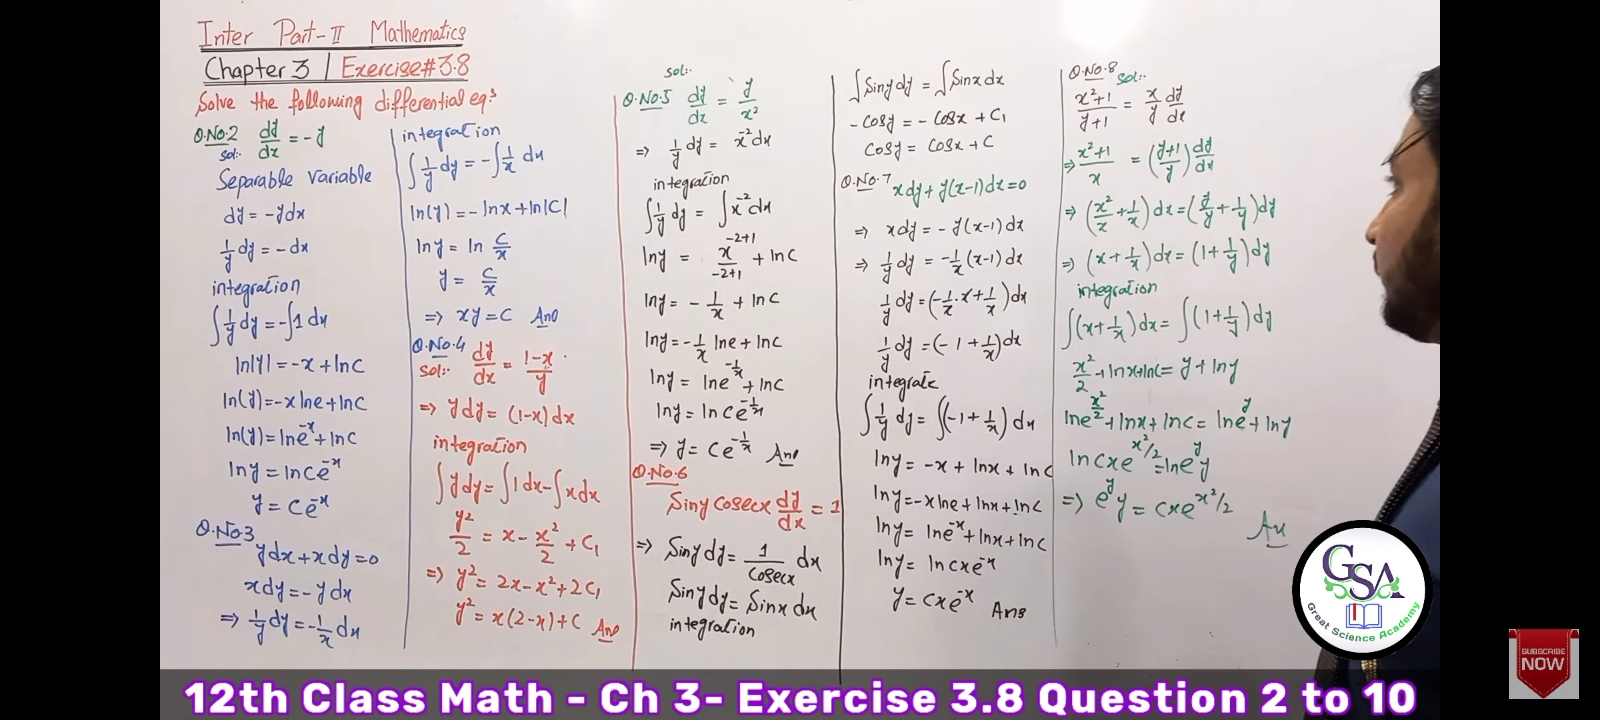 Inter Part-II Mathematics
Chapter 3 / Exercise#3.8
Solve the following differential eq.s
Q.No.2 dy/dx = -y
Sol:-
Separable Variable
dy = -ydx
1/y dy = -dx
integration
∫1/y dy = -∫1 dx
ln|y| = -x + lnC
ln(y) = -x lne + lnC
ln(y) = lne^-x + lnC
lny = lnCe^-x
y = Ce^-x
Q.No.3
ydx + xdy = 0
xdy = -ydx
⇒ 1/y dy = -1/x dx
integration
∫1/y dy = -∫1/x dx
ln(y) = -lnx + ln|C|
lny = ln C/x
y = C/x
⇒ xy = C Ans
Q.No.4
Sol:- dy/dx = 1-x/y
⇒ ydy = (1-x)dx
integration
∫ydy = ∫1dx - ∫xdx
y²/2 = x - x²/2 + C₁
⇒ y² = 2x - x² + 2C₁
y² = x(2-x) + C Ans
Sol:-
Q.No.5 dy/dx = y/x²
⇒ 1/y dy = x^-2 dx
integration
∫1/y dy = ∫x^-2 dx
lny = x^-2+1/-2+1 + lnC
lny = -1/x + lnC
lny = -1/x lne + lnC
lny = lne^-1/x + lnC
lny = lnCe^-1/x
⇒ y = Ce^-1/x Ans
Q.No.6
Siny Cosecx dy/dx = 1
⇒ Siny dy = 1/Cosecx dx
Siny dy = Sinx dx
integration
∫Siny dy = ∫Sinx dx
-Cosy = -Cosx + C₁
Cosy = Cosx + C
Q.No.7 xdy + y(x-1)dx = 0
⇒ xdy = -y(x-1)dx
⇒ 1/y dy = -1/x(x-1)dx
1/y dy = (-1/x.x + 1/x)dx
1/y dy = (-1 + 1/x)dx
integrate
∫1/y dy = ∫(-1 + 1/x)dx
lny = -x + lnx + lnC
lny = -x lne + lnx + lnC
lny = lne^-x + lnx + lnC
lny = lnCxe^-x
y = Cxe^-x Ans
Q.No.8 Sol:-
x²+1/y+1 = x/y dy/dx
⇒ x²+1/x = (y+1/y)dy/dx
⇒ (x²/x + 1/x)dx = (y/y + 1/y)dy
⇒ (x + 1/x)dx = (1 + 1/y)dy
integration
∫(x + 1/x)dx = ∫(1 + 1/y)dy
x²/2 + lnx + lnC = y + lny
lne^x²/2 + lnx + lnC = lne^y + lny
lnCxe^x²/2 = lne^y y
⇒ e^y y = Cxe^x²/2
Ans
GSA
Great Science Academy
SUBSCRIBE
NOW
12th Class Math - Ch 3- Exercise 3.8 Question 2 to 10